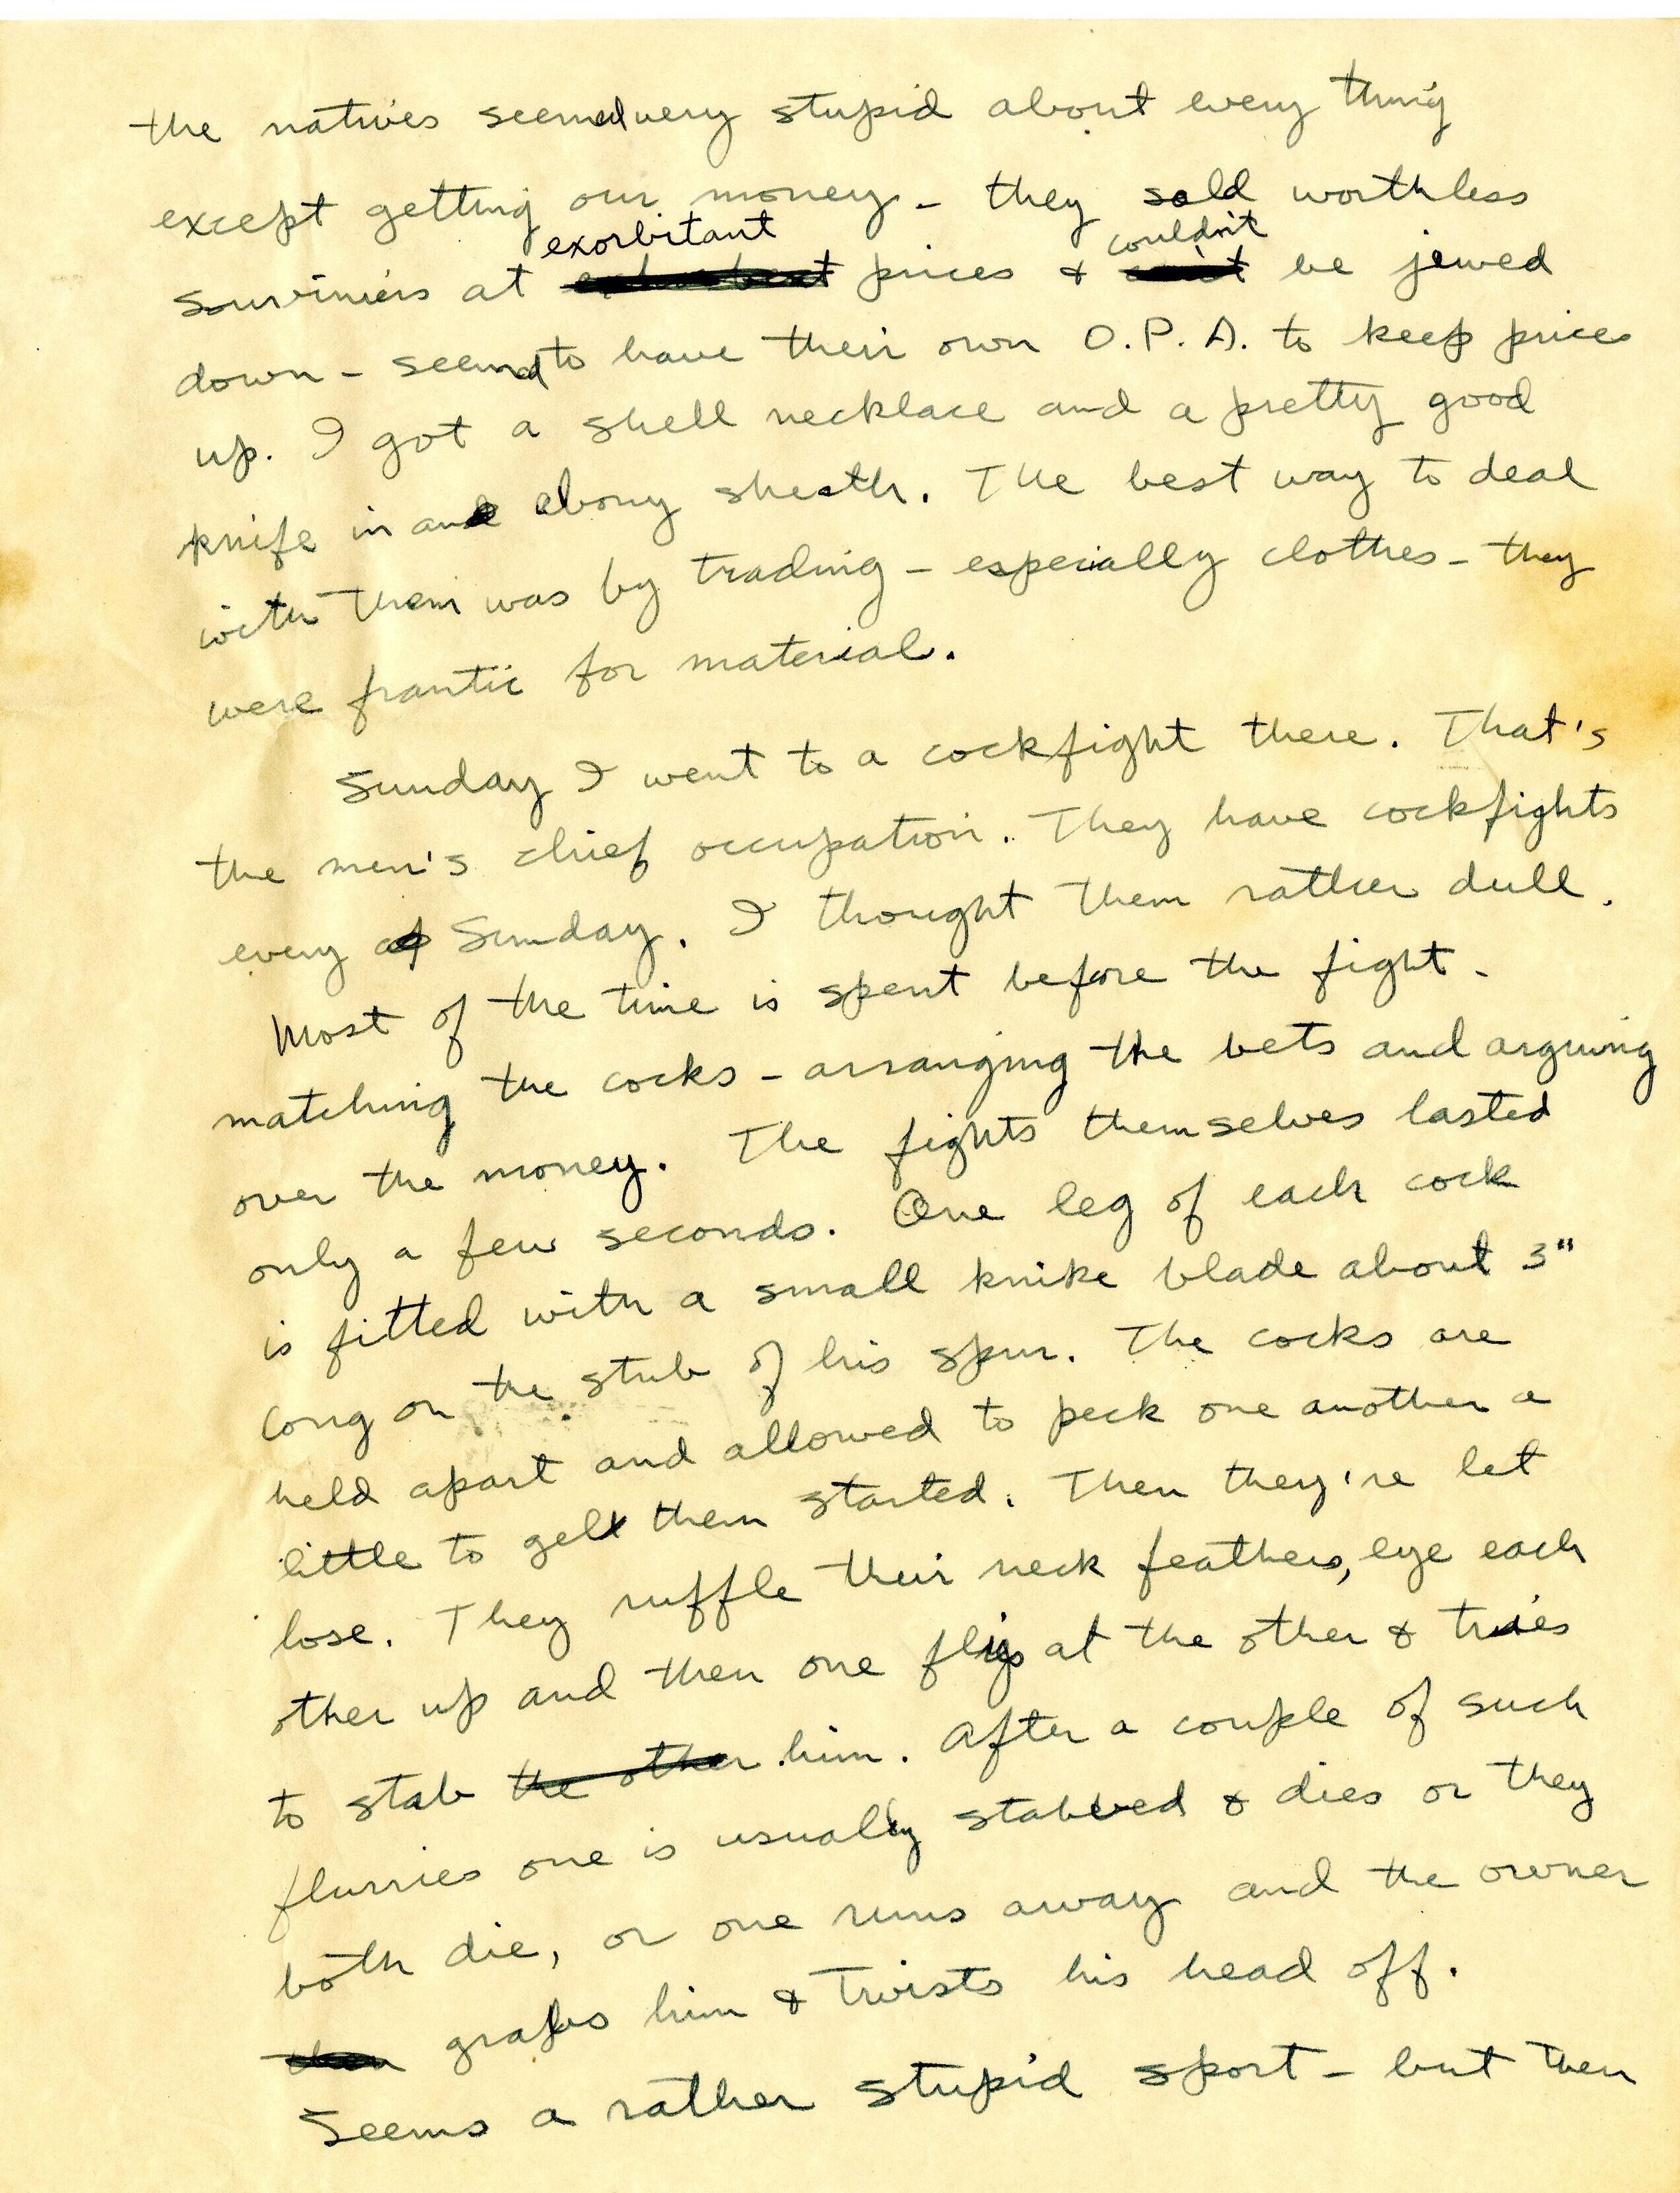 the natives seemed very stupid about every thing
except getting our money - they sold worthless
exorbitant couldn't
Surviniers at prices & be jewed
down - seemed to have their own O.P.A. to keep prices
up. I got a shell necklace and a pretty good
knife in an ebony sheath. The best way to deal
with them was by trading - especially clothes - they
were frantic for material.
Sunday I went to a cockfight there. That's
the men's chief occupation. They have cockfights
every Sunday. I thought them rather dull.
Most of the time is spent before the fight -
matching the cocks - arranging the bets and arguing
over the money. The fights themselves lasted
only a few seconds. One leg of each cock
is fitted with a small knike blade about 3"
long on the stub of his spur. The cocks are
held apart and allowed to peck one another a
little to get them started. Then they're let
lose. They ruffle their neck feathers, eye each
other up and then one flys at the other & tries
to stab the other him. After a couple of such
flurries one is usually stabbed & dies or they
both die, or one runs away and the owner
then grabs him & twists his head off.
Seems a rather stupid sport - but then